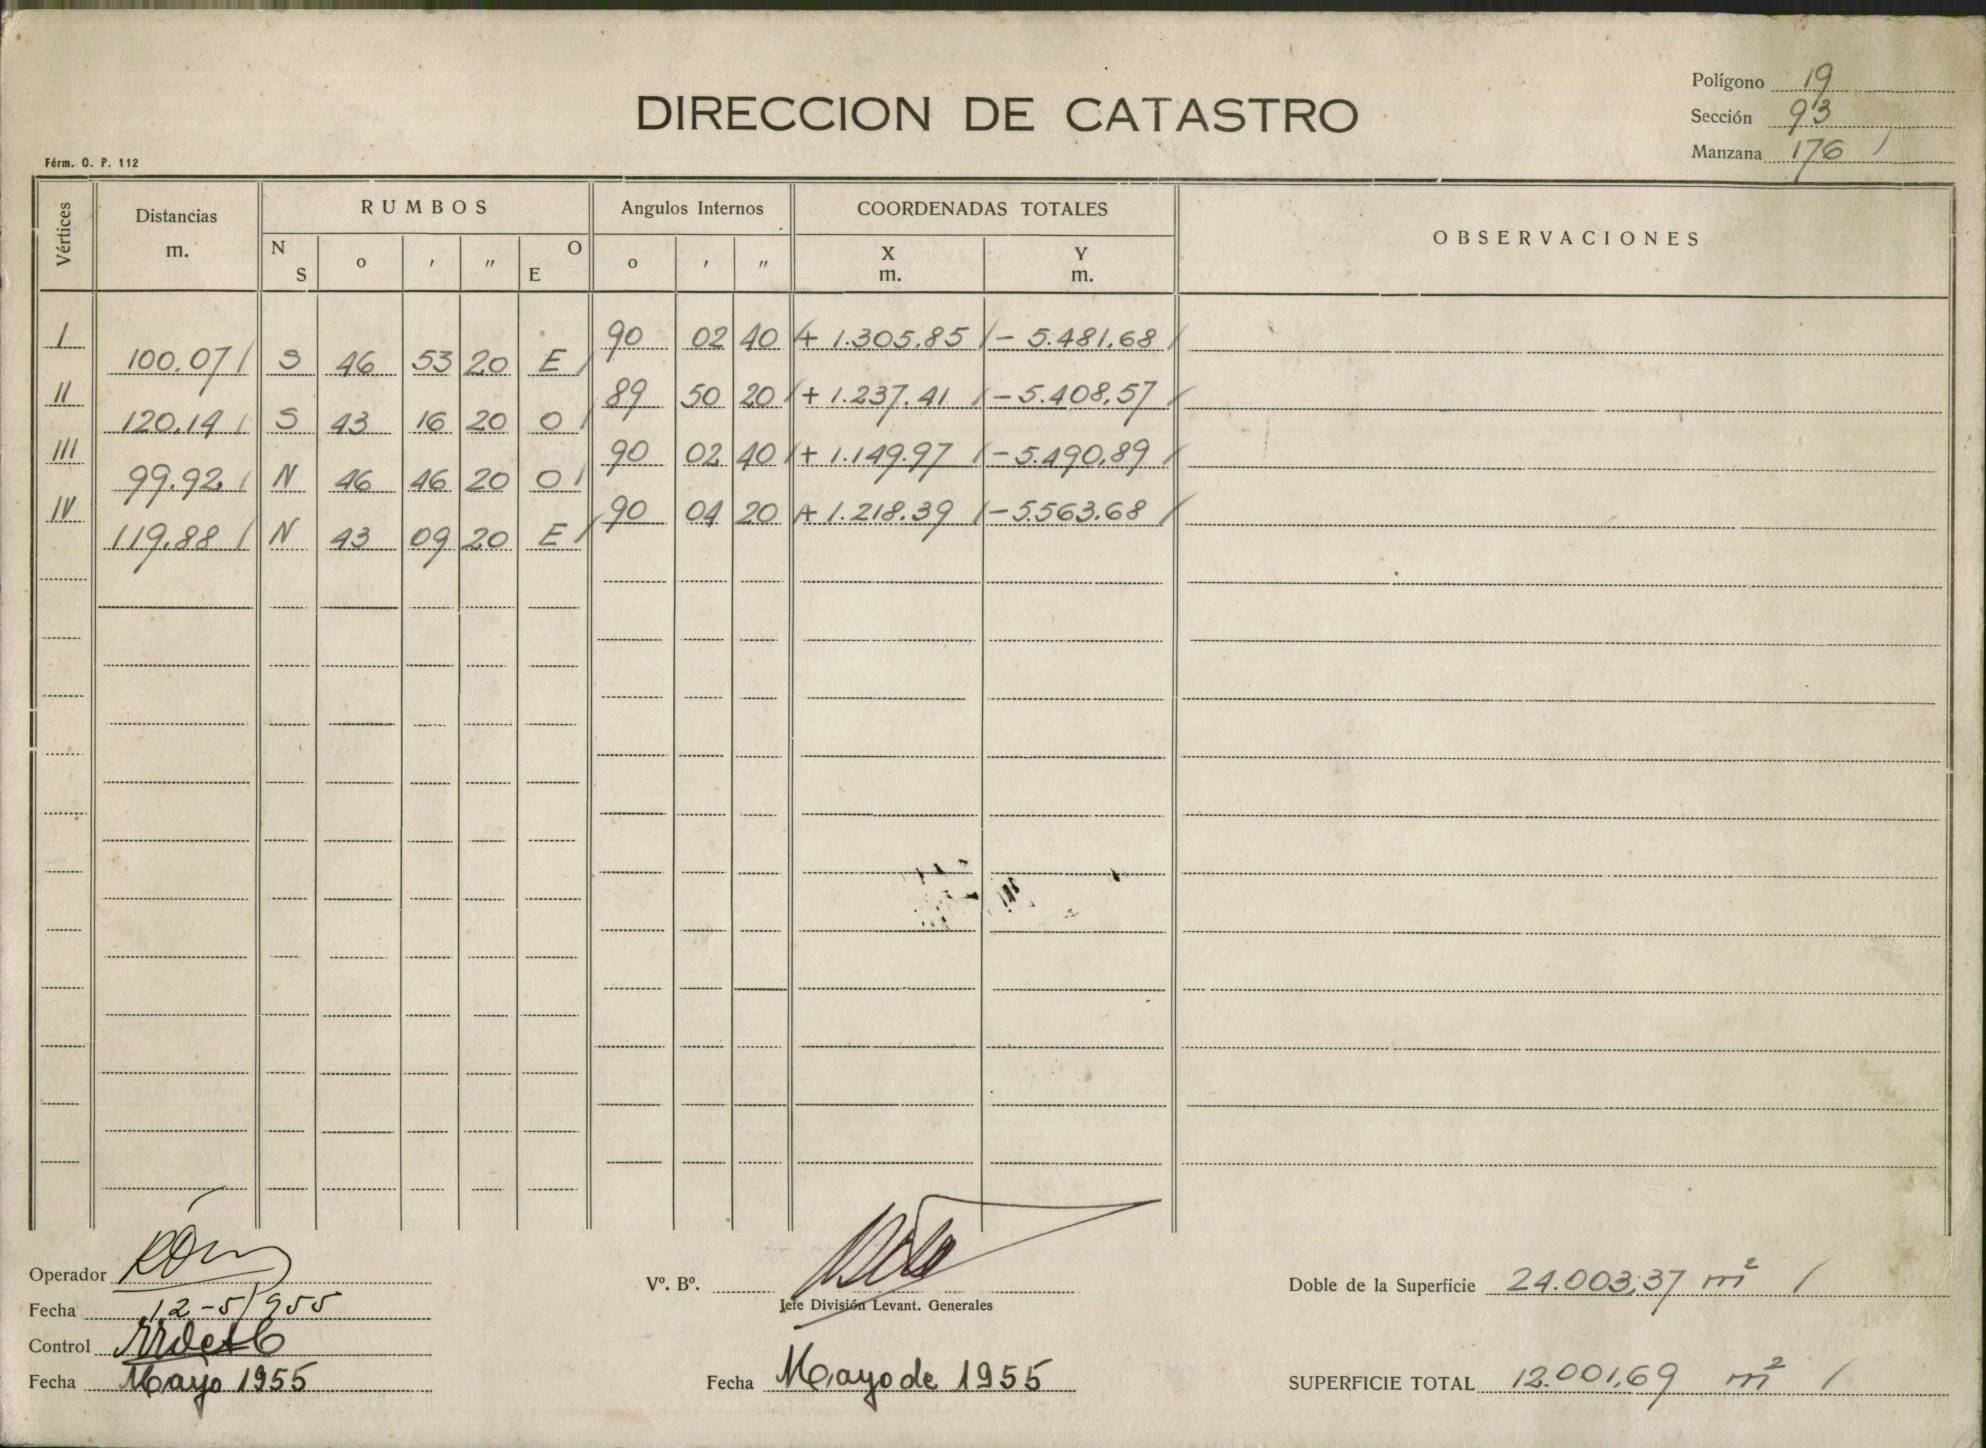 Polígono 19
DIRECCION DE CATASTRO
Sección 93
Manzana 176 /
Fórm. O. P. 112
Vértices Distancias m. RUMBOS Angulos Internos COORDENADAS TOTALES OBSERVACIONES
N S o ' " O E o ' " X m. Y m.
I 90 02 40 / + 1.305.85 / - 5.481.68 /
100.07 / S 46 53 20 E /
II 89 50 20 / + 1.237.41 / - 5.408.57 /
120.14 / S 43 16 20 O /
III 90 02 40 / + 1.149.97 / - 5.490.89 /
99.92. / N 46 46 20 O /
IV 90 04 20 / + 1.218.39 / - 5.563.68 /
119.88 / N 43 09 20 E /
Operador
Vº. Bº.
Doble de la Superficie 24.003,37 m² /
Jefe División Levant. Generales
Fecha 12-5/955
Control
Fecha Mayo 1955
Fecha Mayo de 1955
SUPERFICIE TOTAL 12.001,69 m² /